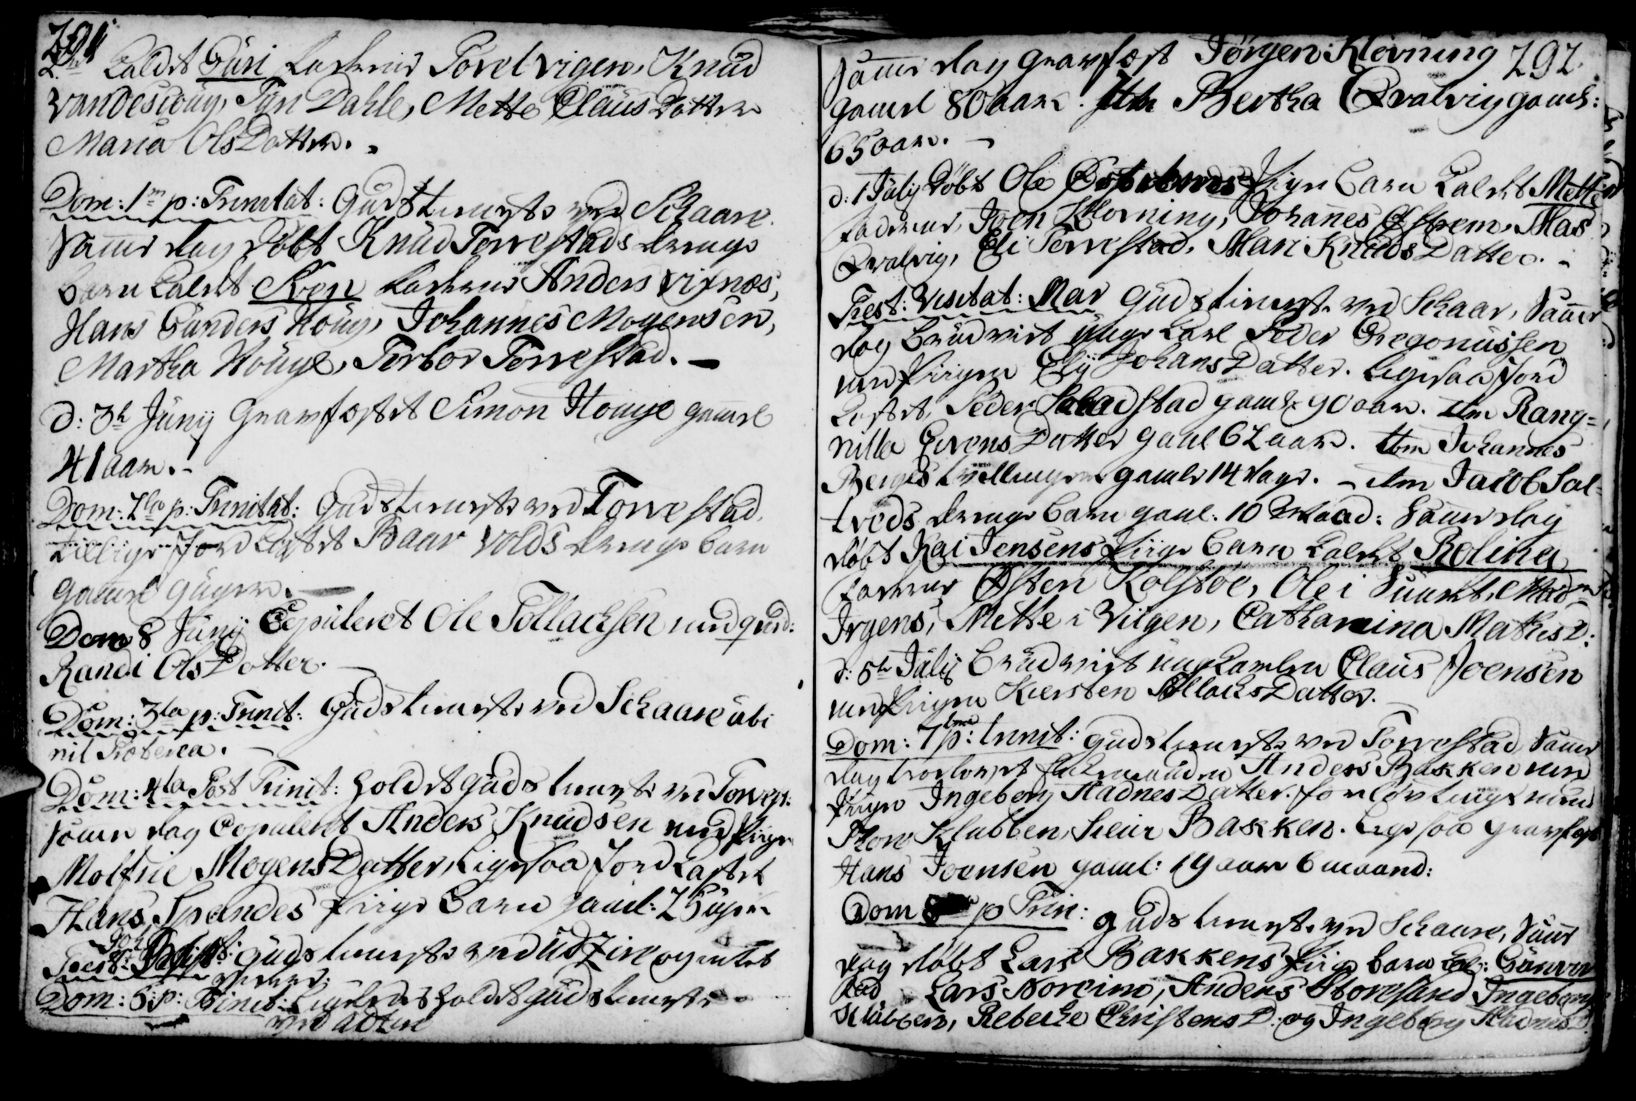 291
Kaldet Guri Fadderne Torel vigen, Knud
Vandeskoug, Tyri Dahle, Mette Claus Datter
Maria Ols Datter.
Dom: 1ma p: Trinitat: Gudstieneste ved Schaare
samme dag døbt Knud Torrestads drenge
barn kaldet Sven Fadderne Anders Vixnæs,
Hans Gunders Houge, Johannes Mogensen,
Martha Houge, Torbor Torrestad.
d: 3de Junij Gravfæstet Simon Houge gamel
41 aar.
Dom: 2da p: Trinitat: Gudstieneste ved Torrestad
tillige Jord kastet Baar Volds drenge barn
gamel
Dom 8 Junij Copuleret Ole Tollachsen med qvind:
Randi Ols Datter.
Dom: 3tia p: Trinit: Gudstieneste ved Schaare ubi
nil
Dom: 4ta Post Trinit: holdet Gudstieneste ved Torvest:
samme dag Copuleret Anders Knudsen med Pigen
Molfrie Mogens Datter, Ligesaa Jord Kastet
Hans Spandes Pige Barn gamel: 25 uger
Fest: gudstieneste ved Udzire og intet
Dom: 6 p: Trinit: Ligeledes holdet gudstieneste
292
samme dag gravfæst Jørgen Klovning
gamel 80 aar. Item Bertha Qvalvig gamel:
65 aar.
d: 1 Julij Døbt Ole Pige barn kaldet Mette
Fadderne, Joen Klovning, Johannes Mas
Qvalvig, Eli Torrestad, Mari Knuds Datter.
Fest: Visitat: Mar Gudstieneste ved Schaar, samme
dag brudviet unge karl Peder Gregoriussen
med Pigen Elij Johans Datter. Ligesaa Jord
kastet, Peder gamel 90 aar. Item Rang=
nilla Evens Datter gaml 62 aar. Item Johannes
Berges tvillinger gamle 14 dage. - item Jacob Sal-
tveds drenge barn gaml. 10 Maad: samme dag
døbt Kai Jensens Pige barn kaldet Rolina
Fadderne Østen Kolstoe, Ole i Sundet,
Irgens, Mette i Viigen, Catharina Mathis D:
d: 5te Julij brudviet ungkarlen Claus Joensen
med Pigen Kiersten Tollachs Datter.
Dom: 7ma p: Trinit: gudstieneste ved Torrestad samme
dag trolovet Anders Bakken med
Pigen Ingeborg Stadnes Datter: forlovlinge mænd
Klubben Bakken. Ligesaa gravfæst
Hans Joensen gaml: 19 aar 6 maand:
Dom p Trin: gudstieneste ved Schaare, samme
dag døbt Lars Bakkens Pige barn
Fad Lars Noreim, Anders Storesund Ingeborg
Klubben, Rebecke Christens D: og Ingeborg Stadnes D.